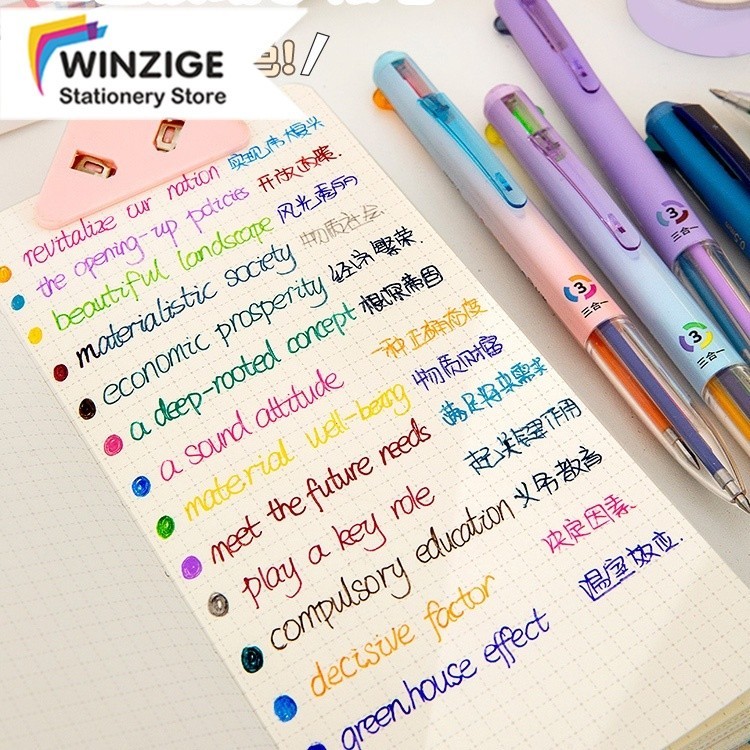 WINZIGE
Stationery Store
revitalize our nation 实现伟大复兴
the opening-up policies 开放政策.
beautiful landscape 风光秀丽
materialistic society 物质社会
economic prosperity 经济繁荣.
a deep-rooted concept 根深蒂固
a sound attitude 一种正确态度
material well-being 物质财富
meet the future needs 满足将来需求
play a key role 起关键作用
compulsory education 义务教育
decisive factor 决定因素.
greenhouse effect 温室效应.
3
三合一
3
三合一
3
三合一